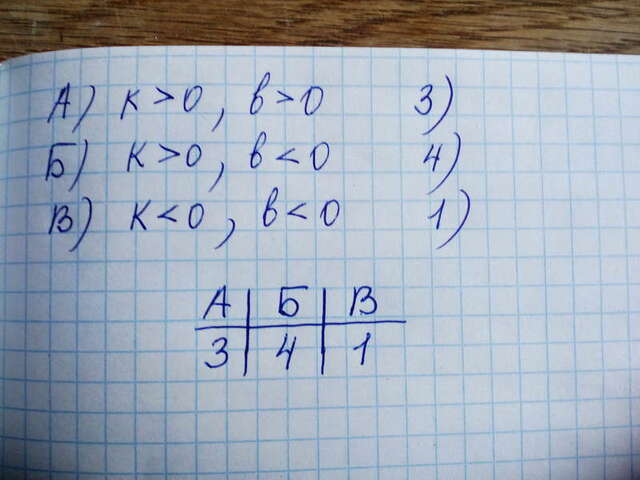 А) к>0, в>0 3)
Б) к>0, в<0 4)
В) к<0, в<0 1)
А | Б | В
3 | 4 | 1